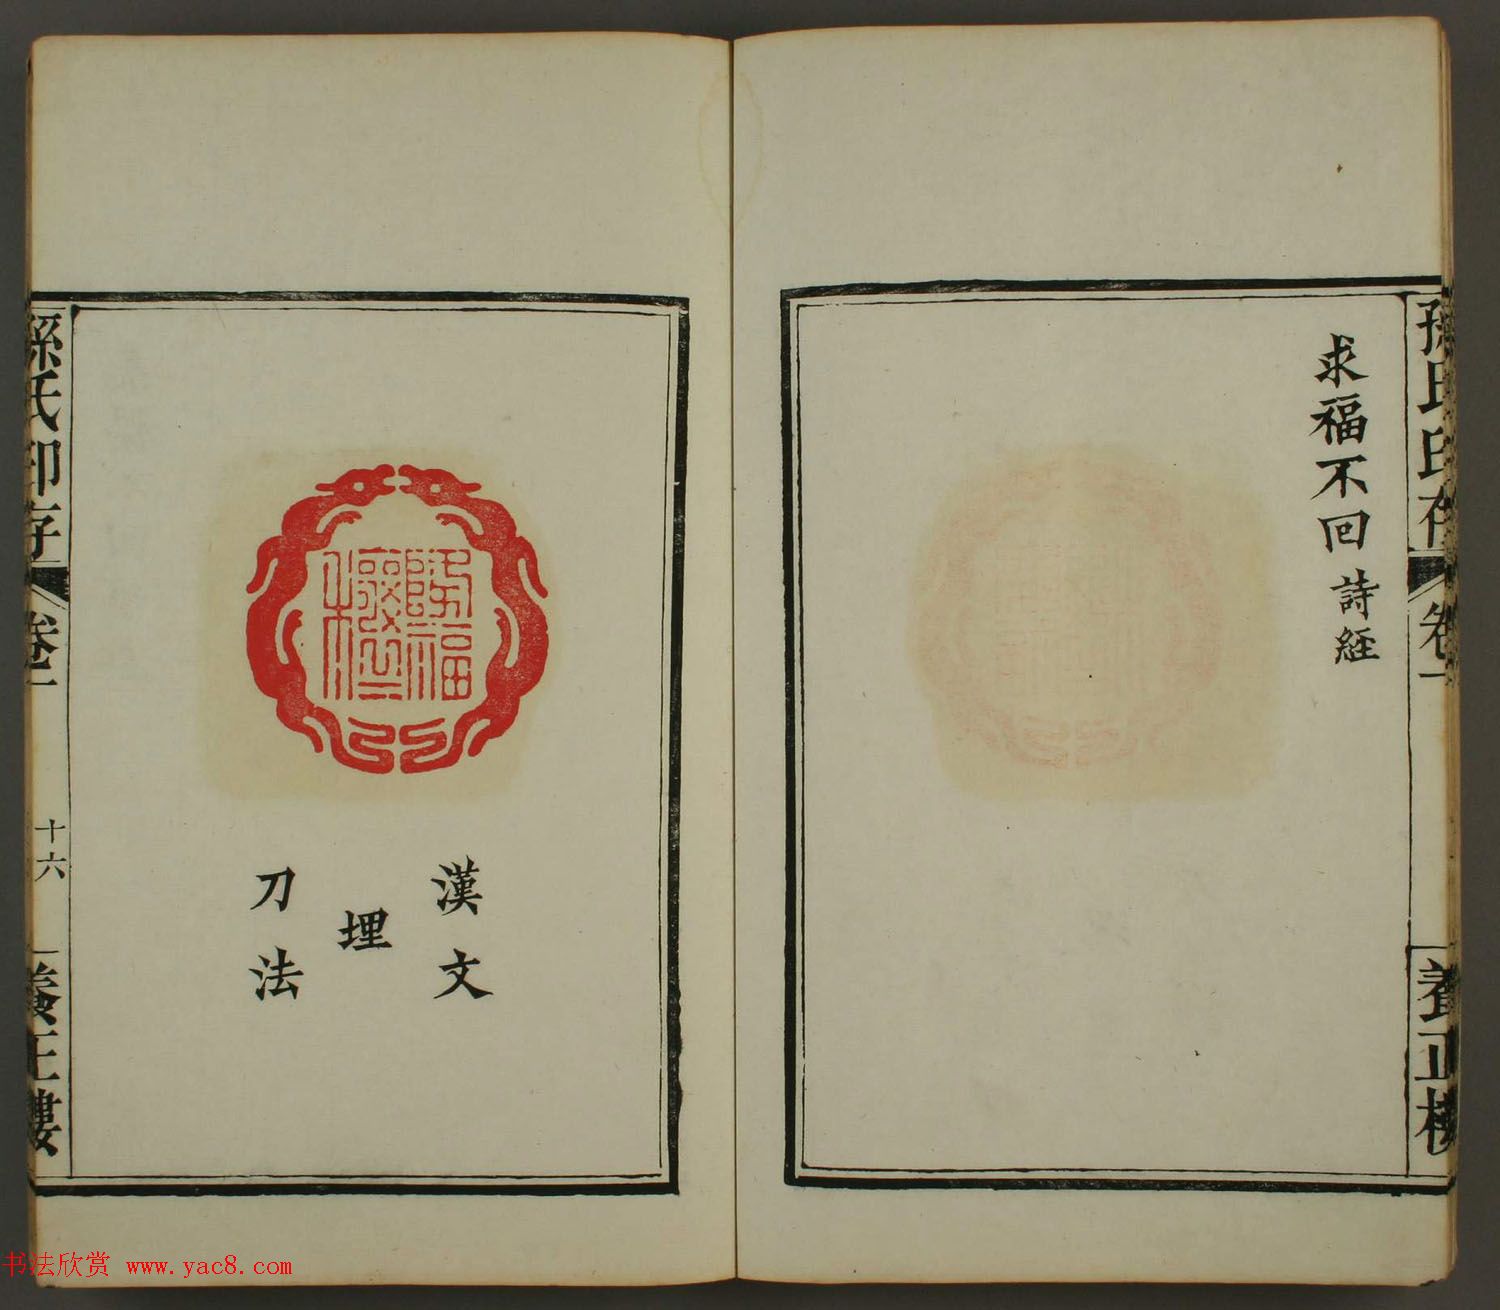 孫氏印存
卷一
養正樓
求福不回 詩經
漢文
埋
刀法
孫氏印存
卷一
十六
養正樓
书法欣赏 www.yac8.com